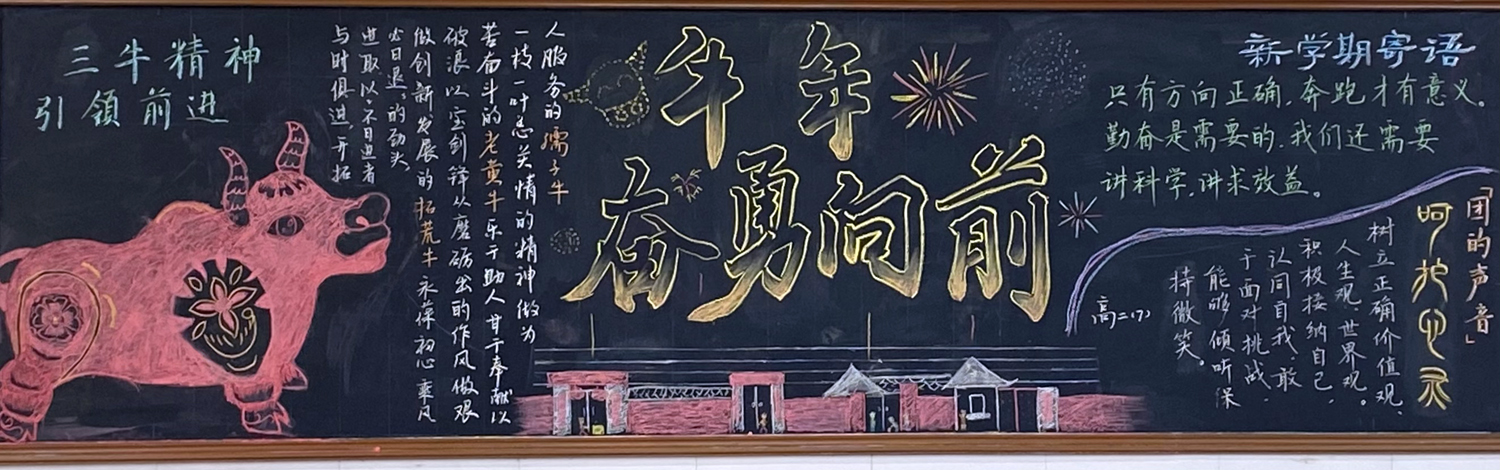 三牛精神
引领前进
与时俱进,开拓
进取以不日进者
必日退的劲头,
做创新发展的拓荒牛 永葆初心乘风
破浪以宝剑锋从磨砺出的作风做艰
苦奋斗的老黄牛 乐于助人甘于奉献以
一枝一叶总关情的精神做为
人服务的孺子牛
牛年
奋勇向前
新学期寄语
只有方向正确,奔跑才有意义。
勤奋是需要的,我们还需要
讲科学,讲求效益。
「团的声音」
呵护心灵
树立正确价值观、
人生观、世界观。
积极接纳自己,
认同自我、敢
于面对挑战,
能够倾听保
持微笑。
高二(7)